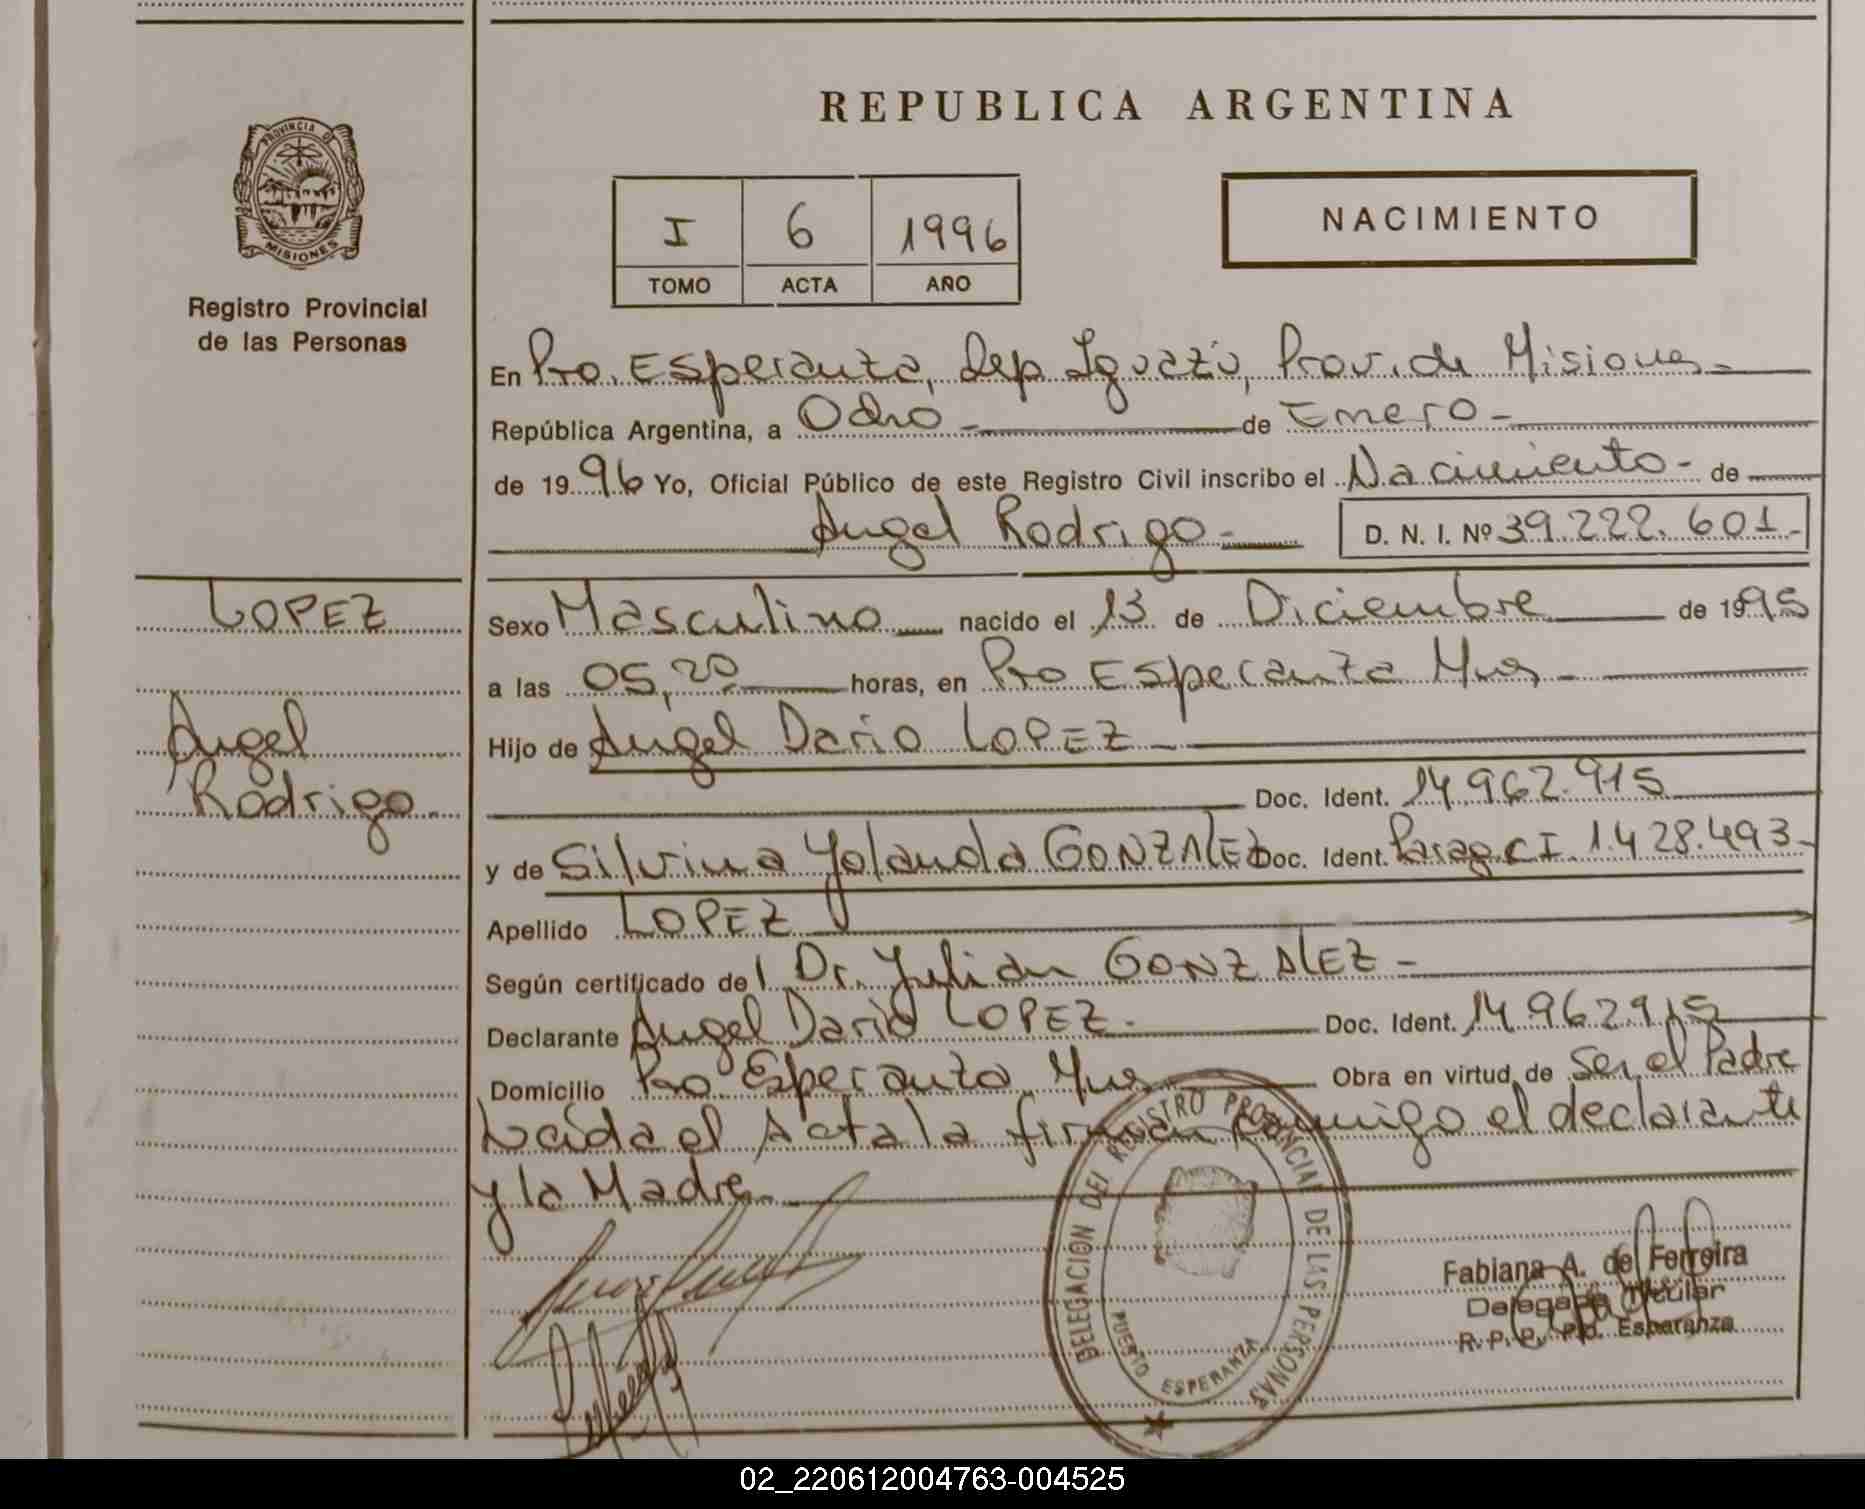 REPUBLICA ARGENTINA
PROVINCIA DE
MISIONES
Registro Provincial
de las Personas
I 6 1996
TOMO ACTA AÑO
NACIMIENTO
En Pto. Esperanza, Dep. Iguazú, Prov. de Misiones
República Argentina, a Ocho - de Enero -
de 1996 Yo, Oficial Público de este Registro Civil inscribo el Nacimiento - de
Angel Rodrigo - D. N. I. Nº 39.222.601.-
LOPEZ
Angel
Rodrigo.
Sexo Masculino nacido el 13 de Diciembre de 1995
a las 05,20 horas, en Pto Esperanza Mnes -
Hijo de Angel Dario LOPEZ -
Doc. Ident. 14.962.915
y de Silvina Yolanda GONZALEZ Doc. Ident. Parag. CI 1.428.493-
Apellido LOPEZ
Según certificado del Dr. Julian GONZALEZ -
Declarante Angel Dario LOPEZ - Doc. Ident. 14.962915
Domicilio Pto Esperanza Mnes Obra en virtud de Ser el Padre
Leída el Acta la firman conmigo el declarante
y la Madre.
DELEGACION DEL REGISTRO PROVINCIAL DE LAS PERSONAS
PUERTO ESPERANZA
Fabiana A. de Ferreira
Delegada Titular
R. P. P. Pto. Esperanza
02_220612004763-004525